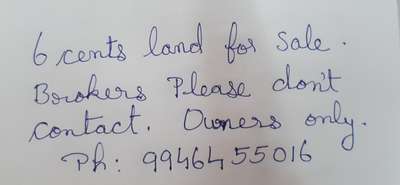 6 cents land for sale.
Brokers Please don't
contact. Owners only.
Ph: 9946455016